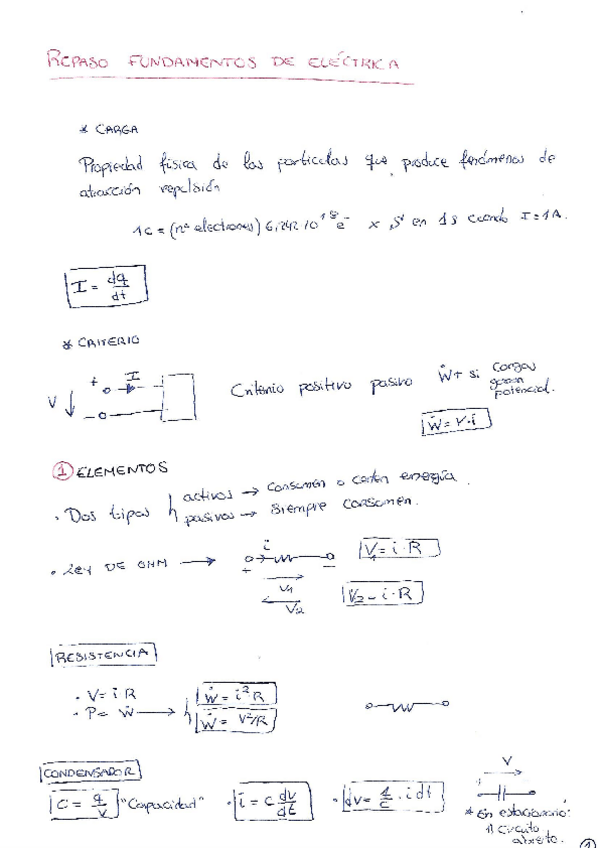 REPASO FUNDAMENTOS DE ELÉCTRICA
* CARGA
Propiedad física de las partículas que produce fenómenos de
atracción repulsión
1C = (nº electrones) 6,242 10¹⁸ e⁻ x S en 1s cuando I = 1A.
I = dq/dt
* CRITERIO
V + I -
Criterio positivo pasivo Ẇ+ si cargas
ganan
potencial.
Ẇ = V·i
① ELEMENTOS
· Dos tipos { activos → Consumen o ceden energía.
pasivos → Siempre consumen.
· LEY DE OHM → i + - V₁ = i·R
V₁
V₂ V₂ - i·R
RESISTENCIA
· V = i R
· P = Ẇ → { Ẇ = i²R
Ẇ = V²/R
CONDENSADOR
C = q/V "Capacidad" · i = c dv/dt · dv = 1/C · i dt
V
* En estacionario:
Circuito
abierto.
1